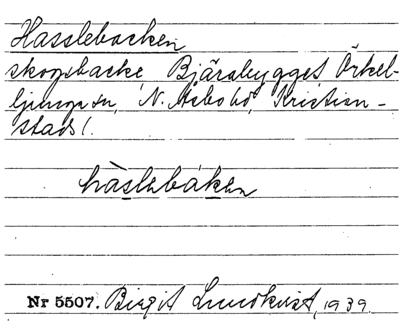 Hasslebacken
skogsbacke Bjärabygget Örkel-
ljunga sn, N. Åsbo hd, Kristian-
stads l.
hàslebáken
Nr 5507. Birgit Lundkvist, 1939.